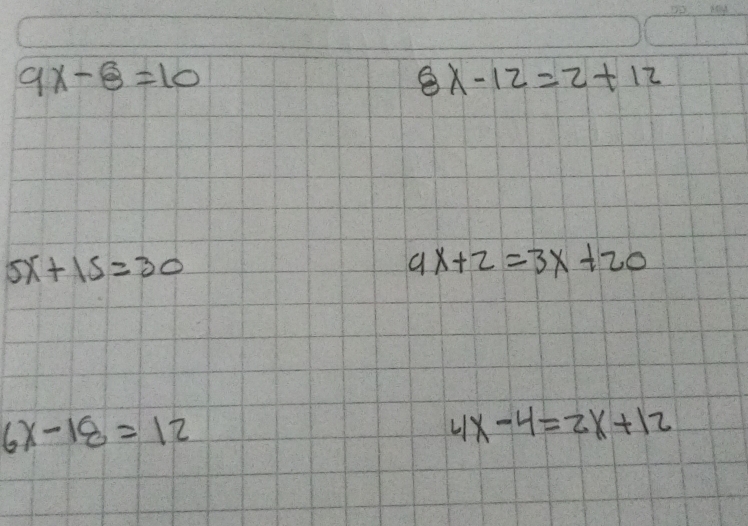 9x-8=10
8x-12=2+12
5x+15=30
9x+2=3x+20
6x-18=12
4x-4=2x+12